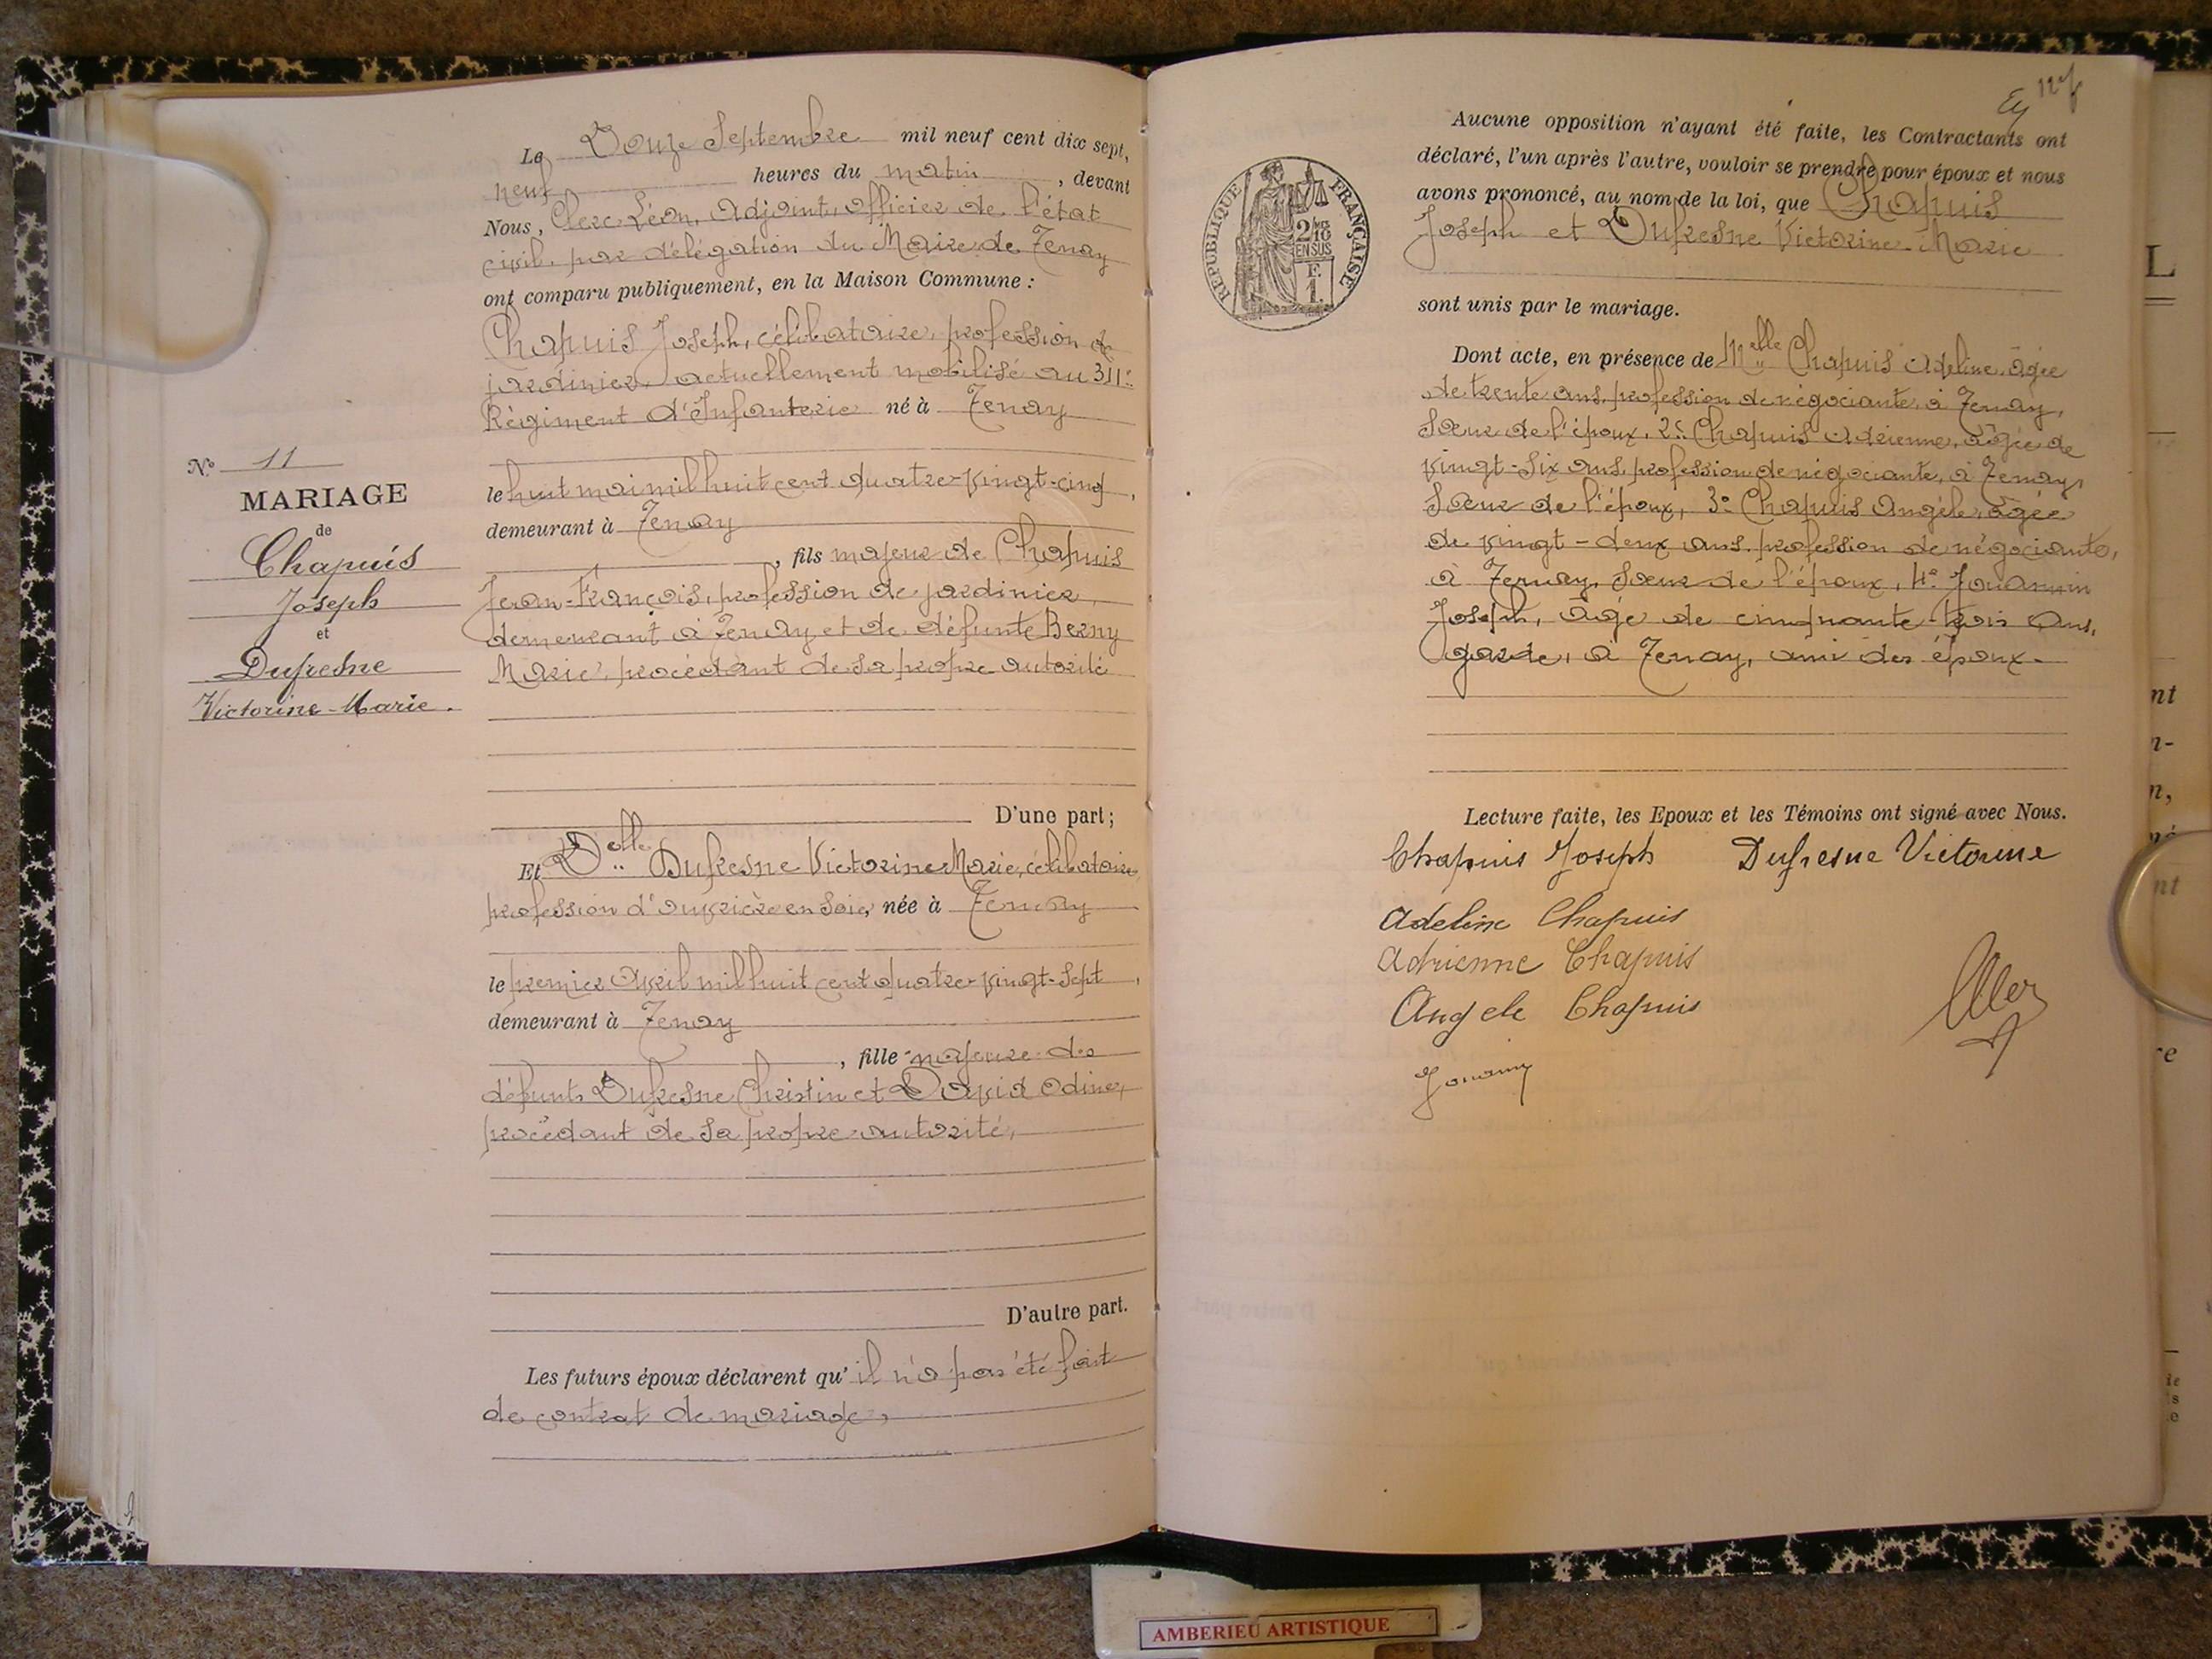 Le Douze Septembre mil neuf cent dix sept,
neuf heures du matin, devant
Nous, Clerc Léon, Adjoint, officier de l'état
civil, par délégation du Maire de Tenay
ont comparu publiquement, en la Maison Commune :
Chapuis Joseph, célibataire, profession de
jardinier, actuellement mobilisé au 311e
Régiment d'Infanterie né à Tenay
le huit mai mil huit cent quatre-vingt-cinq,
demeurant à Tenay
, fils majeur de Chapuis
Jean-François, profession de jardinier,
demeurant à Tenay et de défunte Berny
Marie, procédant de sa propre autorité
D'une part;
Et Delle Dufresne Victorine Marie, célibataire,
profession d'ouvrière en soie, née à Tenay
le premier Avril mil huit cent quatre-vingt-sept,
demeurant à Tenay
, fille majeure des
défunts Dufresne Christin et David Odine,
procédant de sa propre autorité,
D'autre part.
Les futurs époux déclarent qu'il n'a pas été fait
de contrat de mariage,
No 11
MARIAGE
de
Chapuis
Joseph
et
Dufresne
Victorine-Marie.
127
Aucune opposition n'ayant été faite, les Contractants ont
déclaré, l'un après l'autre, vouloir se prendre pour époux et nous
avons prononcé, au nom de la loi, que Chapuis
Joseph et Dufresne Victorine-Marie
sont unis par le mariage.
Dont acte, en présence de Melle Chapuis Adeline, âgée
de trente ans, profession de négociante, à Tenay,
soeur de l'époux, 2e Chapuis Adrienne, âgée de
vingt-six ans, profession de négociante, à Tenay,
soeur de l'époux, 3e Chapuis Angèle, âgée
de vingt-deux ans, profession de négociante,
à Tenay, soeur de l'époux, 4e Jouannin
Joseph, âgé de cinquante-trois ans,
garde, à Tenay, ami des époux.
Lecture faite, les Epoux et les Témoins ont signé avec Nous.
Chapuis Joseph Dufresne Victorine
Adeline Chapuis
Adrienne Chapuis
Angele Chapuis
REPUBLIQUE FRANÇAISE
2/10
EN SUS
F.
1.
AMBERIEU ARTISTIQUE